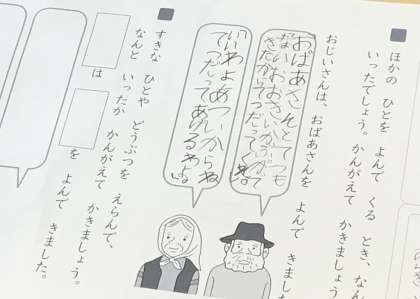 ほかの ひとを よんで くる とき、なん
いったでしょう。かんがえて かきましょう
おじいさんは、おばあさんを よんで きまし
おばあさんとてつも
ないおおきいかぶがで
きたからてつだってくれ。
いいわよあついからね
てつだってあげるわよ。
すきな ひとや どうぶつを えらんで、
なんと いったか かんがえて かきましょう。
は を よんで きました。